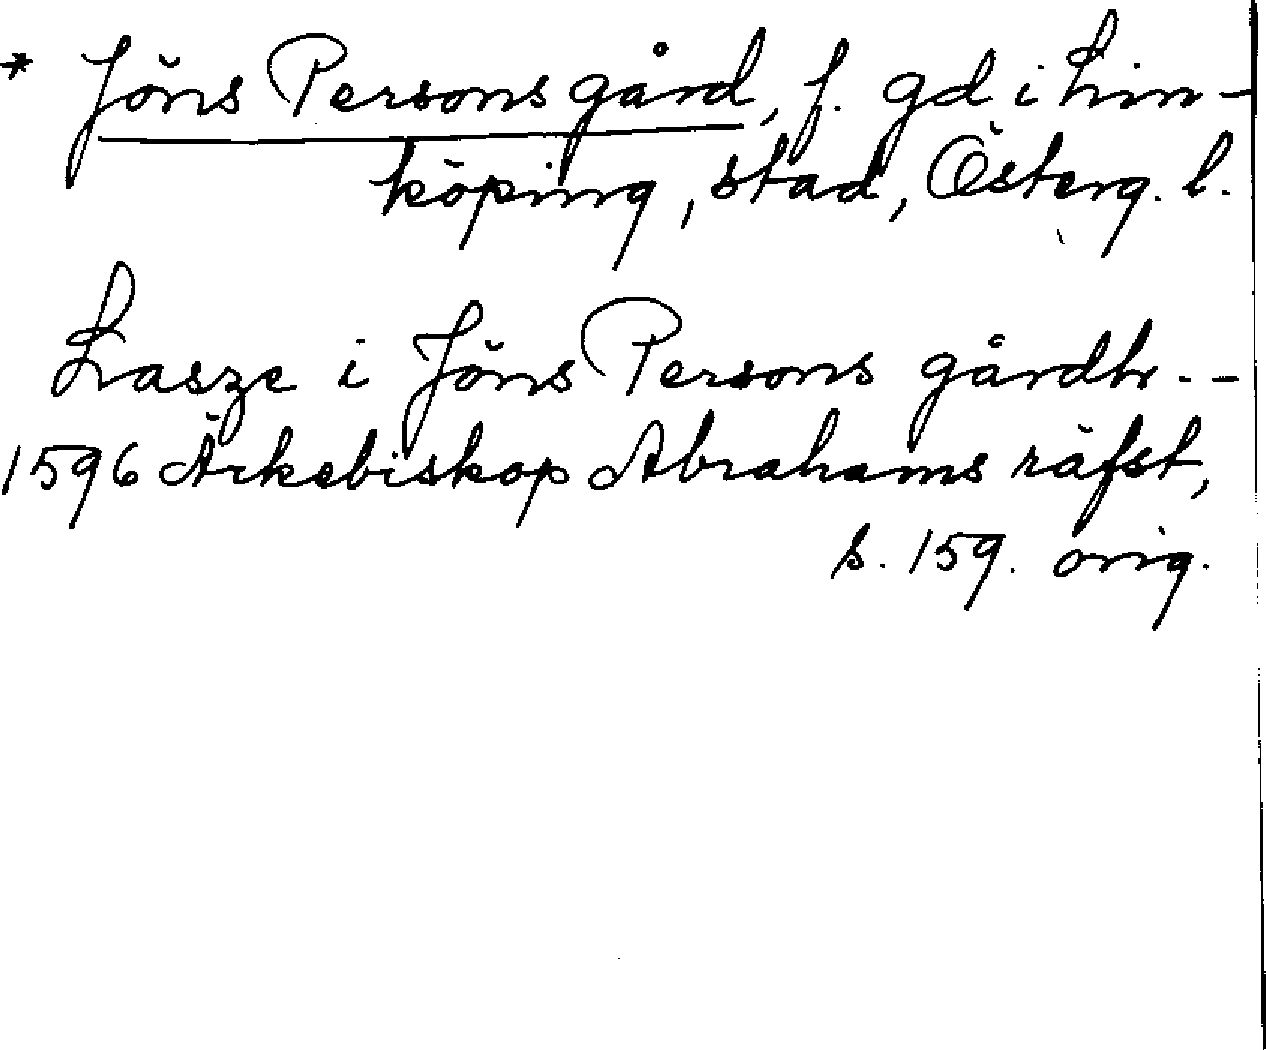 * Jöns Persons gård, f. gd i Lin-
köping, stad, Österg. l.
Lasze i Jöns Persons gårdh --
1596 Ärkebiskop Abrahams räfst,
s. 159. orig.